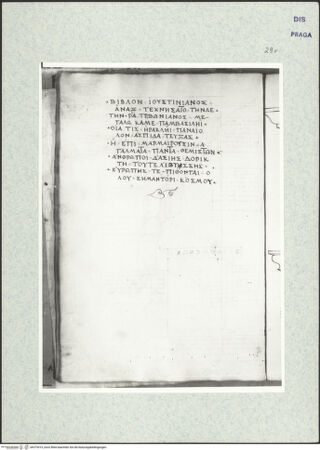 DIS
PRAGA
28v
ΒΙΒΛΟΝ ΙΟΥΣΤΙΝΙΑΝΟΣ
ΑΝΑΞ ΤΕΧΝΗΣΑΤΟ ΤΗΝΔΕ
ΤΗΝ ΡΑ ΤΡΙΒΩΝΙΑΝΟΣ ΜΕ
ΓΑΛΩ ΚΑΜΕ ΠΑΜΒΑΣΙΛΗΙ
ΟΙΑ ΤΙΣ ΗΡΑΚΛΗΙ ΠΑΝΑΙΟ
ΛΟΝ ΑΣΠΙΔΑ ΤΕΥΞΑΣ
Η ΕΠΙ ΜΑΡΜΑΙΡΟΥΣΙΝ Α
ΓΑΛΜΑΤΑ ΠΑΝΤΑ ΘΕΜΙΣΤΩΝ
ΑΝΘΡΩΠΟΙ Δ ΑΣΙΗΣ ΔΟΡΙΚ
ΤΗ ΤΟΥ ΤΕ ΛΙΒΥΣΣΗΣ
ΕΥΡΩΠΗΣ ΤΕ ΠΙΘΟΝΤΑΙ Ο
ΛΟΥ ΣΗΜΑΝΤΟΡΙ ΚΟΣΜΟΥ